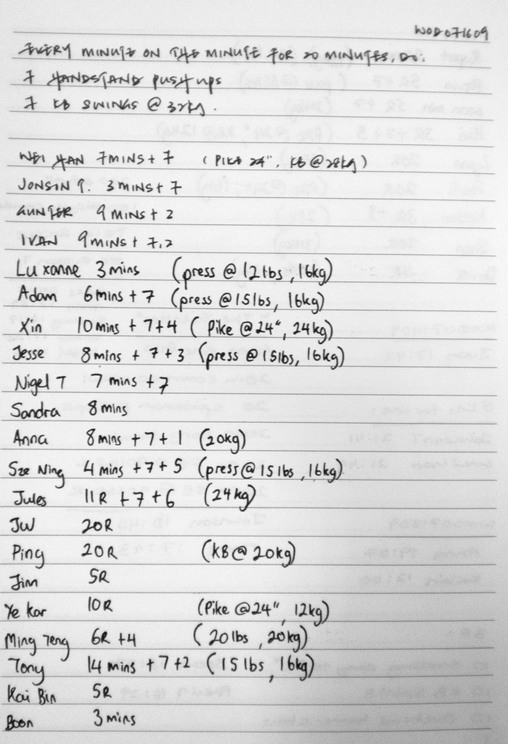 WOD 071609
EVERY MINUTE ON THE MINUTE FOR 20 MINUTES, DO:
7 HANDSTAND PUSH UPS
7 KB SWINGS @ 32KG.
WEI HAN 7MINS + 7 (PIKE 24", KB @ 28kg)
JONSIN T. 3 MINS + 7
GUNTER 9 MINS + 2
IVAN 9 MINS + 7,2
Luxanne 3 mins (press @ 12 lbs, 16kg)
Adam 6 mins + 7 (press @ 15 lbs, 16kg)
Xin 10 mins + 7 + 4 (Pike @ 24", 24kg)
Jesse 8 mins + 7 + 3 (press @ 15 lbs, 16kg)
Nigel T 7 mins + 7
Sandra 8 mins
Anna 8 mins + 7 + 1 (20kg)
Sze Ning 4 mins + 7 + 5 (press @ 15 lbs, 16kg)
Jules 11R + 7 + 6 (24kg)
JW 20R
Ping 20R (KB @ 20kg)
Jim 5R
Ye Kar 10R (Pike @ 24", 12kg)
Ming Teng 6R + 4 (20 lbs, 20kg)
Tony 14 mins + 7 + 2 (15 lbs, 16kg)
Kai Bin 5R
Boon 3 mins